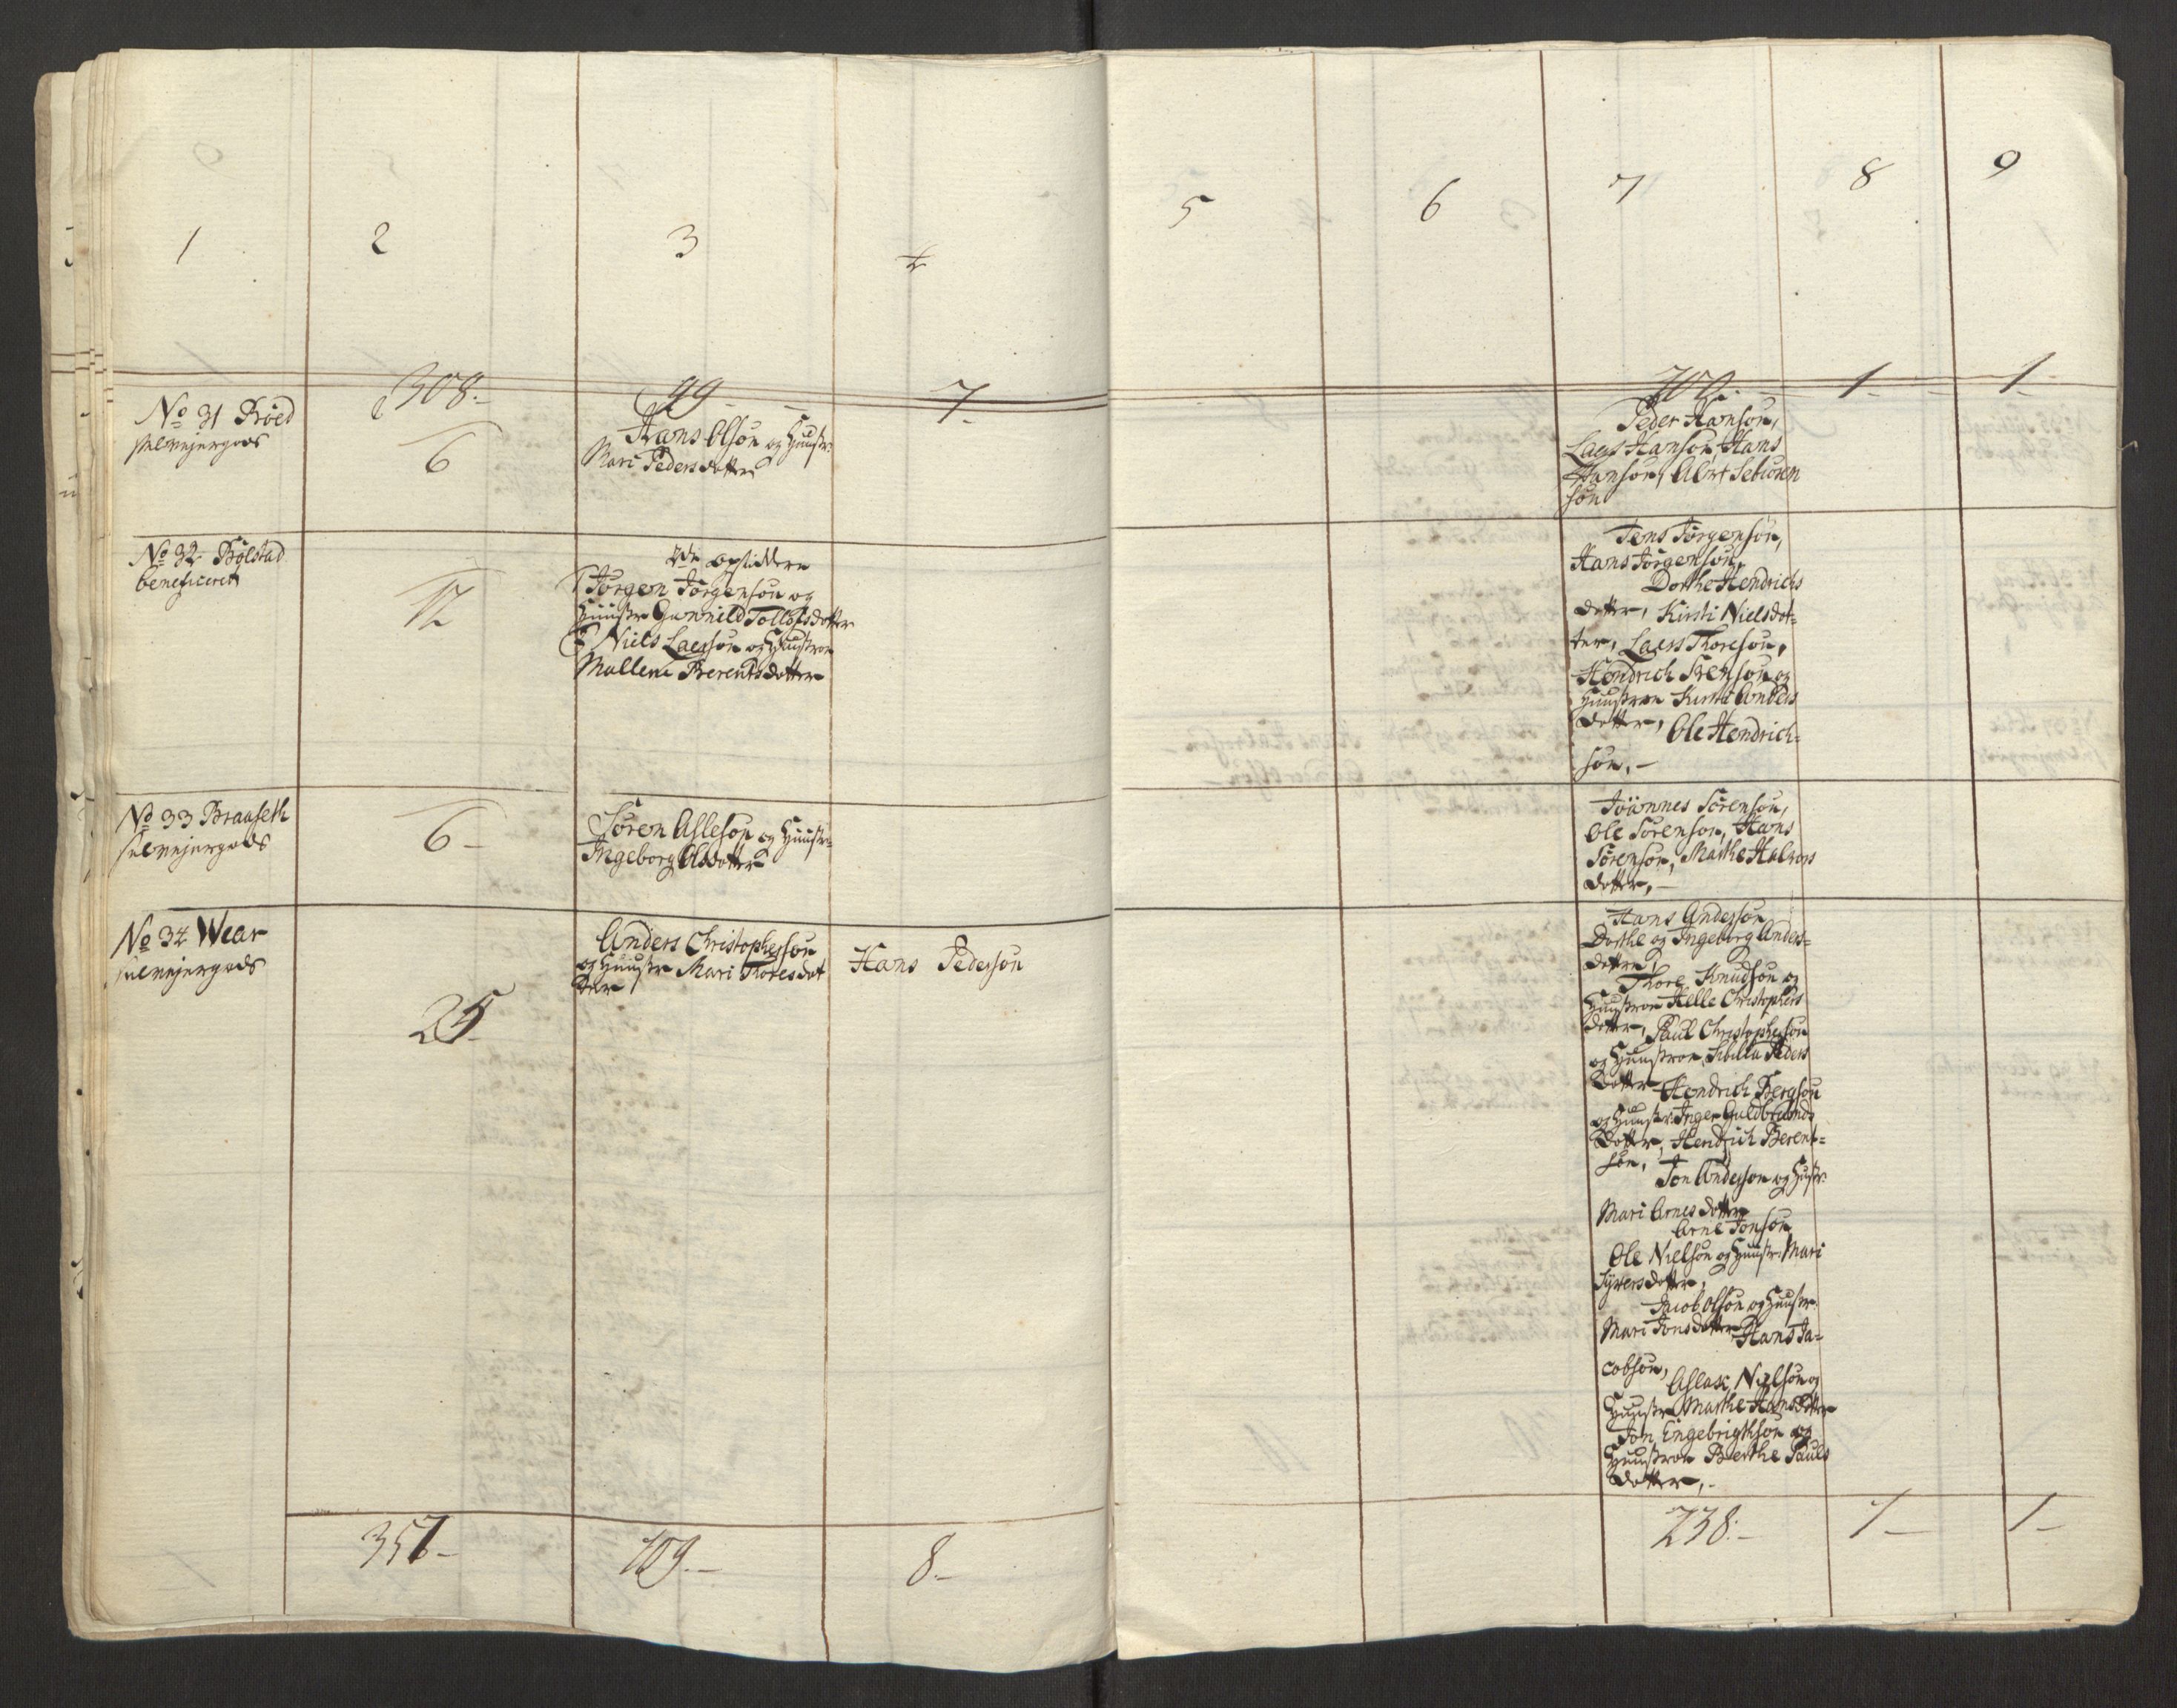 1 2 3 4 5 6 7 8 9
308.- 99- 7- 202.- 1- 1-
No 31 Röed
selvejergods
6
Hans Olsön og Hustr:
Mari Pedersdatter
Peder Hansön,
Laers Hansön, Hans
Hansön,
sön
No 32 Bölstad
beneficeret
12
2de opsiddere
1 Jörgen Jörgensön og
Huustr Gunnild Tollofsdotter
2 Niels Laersön og Huustroe
Mallene Berentsdotter
Jens Jörgensön,
Hans Jörgensön,
Dorthe Hendrichs
dotter, Kirsti Nielsdot=
ter, Laers Thoresön,
Hendrich Svensön og
Huustroe Kirsti Anders
dotter, Ole Hendrich=
sön.-
No 33 Braaseth
selvejergods
6-
Sören Asleson og Huustr:
Ingeborg Olsdotter
Johannes Sörensön,
Ole Sörensön, Hans
Sörensön, Marthe Halvors
dotter,-
No 34 Wear
selvejergods
25-
Anders Christophersön
og Huustr Mari Thoresdot
ter
Hans Pedersön
Hans Andersön
Dorthe og Ingeborg Anders=
dotter,
Thore Knudsön og
Huustroe Helle Christophers
dotter, Paul Christophersön
og Huustroe Sibilla Peders
dotter Hendrich Bergsön
og Huustr: Inger Guldbrands
dotter, Hendrich Berent=
sön,
Jon Andersön og Hustr:
Mari Arnesdotter
Arne Jonsön
Ole Nielsön og Huustr: Mari
Syversdotter,
Jacob Olsön og Huustr:
Mari Jonsdotter Hans Ja=
cobsön,
Aslax Nielsön og
Huustr Marthe Hansdotter
Jon Engebrigthsön og
Huustroe Berthe Pauls
dotter,.-
357- 109.- 8.- 238:- 1- 1-